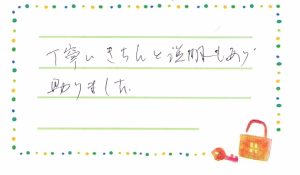 丁寧にきちんと説明もあり
助りました。